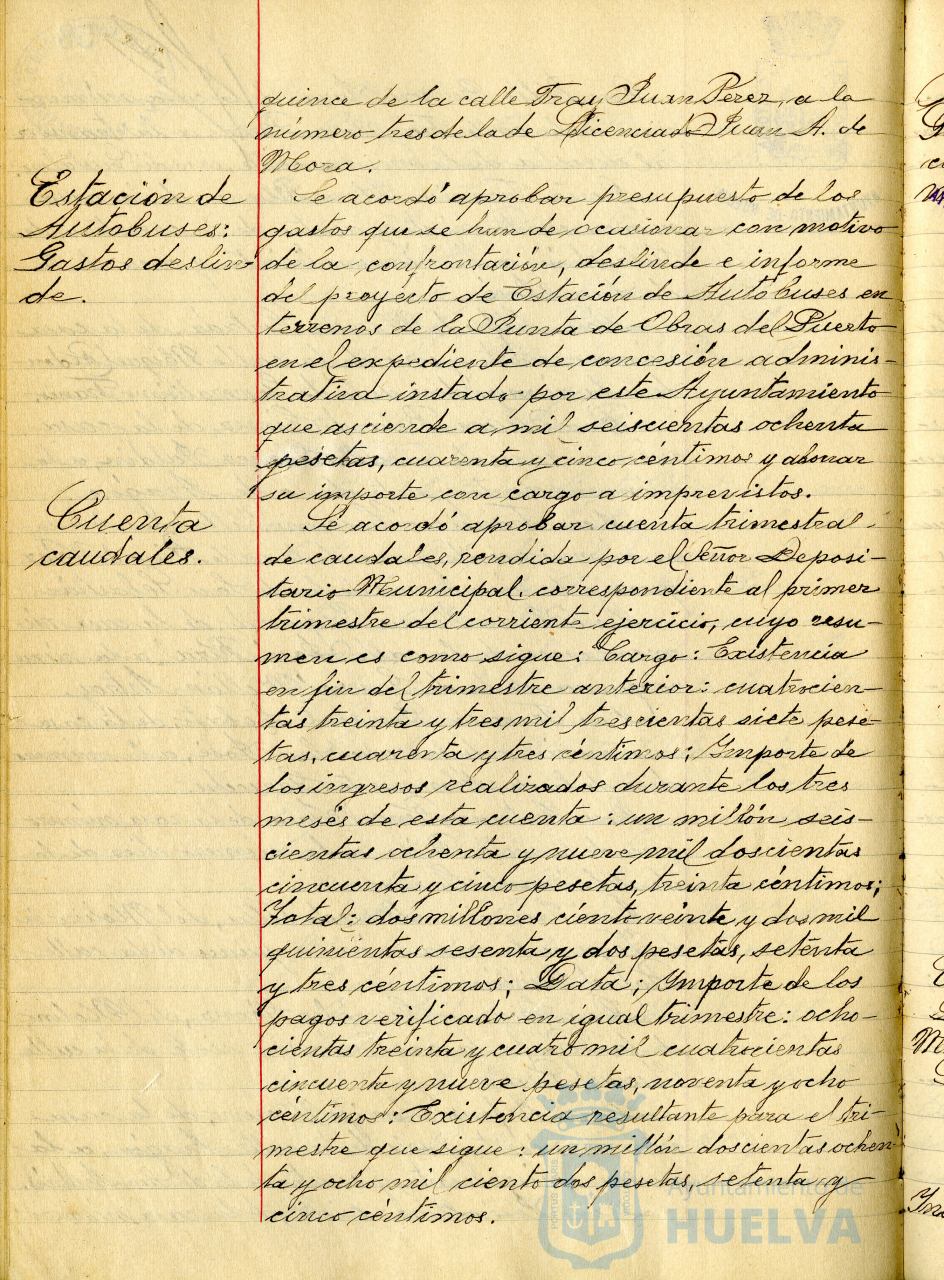 quince de la calle Fray Juan Pérez, a la
número tres de la de Licenciado Juan A. de
Mora.
Estación de
Autobuses:
Gastos deslin
de.
Se acordó aprobar presupuesto de los
gastos que se han de ocasionar con motivo
de la confrontación, deslinde e informe
del proyecto de Estación de Autobuses en
terrenos de la Junta de Obras del Puerto
en el expediente de concesión adminis-
trativa instado por este Ayuntamiento
que asciende a mil seiscientas ochenta
pesetas, cuarenta y cinco céntimos y abonar
su importe con cargo a imprevistos.
Cuenta
caudales.
Se acordó aprobar cuenta trimestral
de caudales, rendida por el Señor Deposi-
tario Municipal, correspondiente al primer
trimestre del corriente ejercicio, cuyo resu-
men es como sigue: Cargo: Existencia
en fin del trimestre anterior: cuatrocien-
tas treinta y tres mil trescientas siete pese-
tas, cuarenta y tres céntimos; Importe de
los ingresos realizados durante los tres
meses de esta cuenta: un millón seis-
cientas ochenta y nueve mil doscientas
cincuenta y cinco pesetas, treinta céntimos;
Total: dos millones ciento veinte y dos mil
quinientas sesenta y dos pesetas, setenta
y tres céntimos; Data; Importe de los
pagos verificado en igual trimestre: ocho-
cientas treinta y cuatro mil cuatrocientas
cincuenta y nueve pesetas, noventa y ocho
céntimos: Existencia resultante para el tri-
mestre que sigue: un millón doscientas ochen-
ta y ocho mil ciento dos pesetas, setenta y
cinco céntimos.
Ayuntamiento de
HUELVA